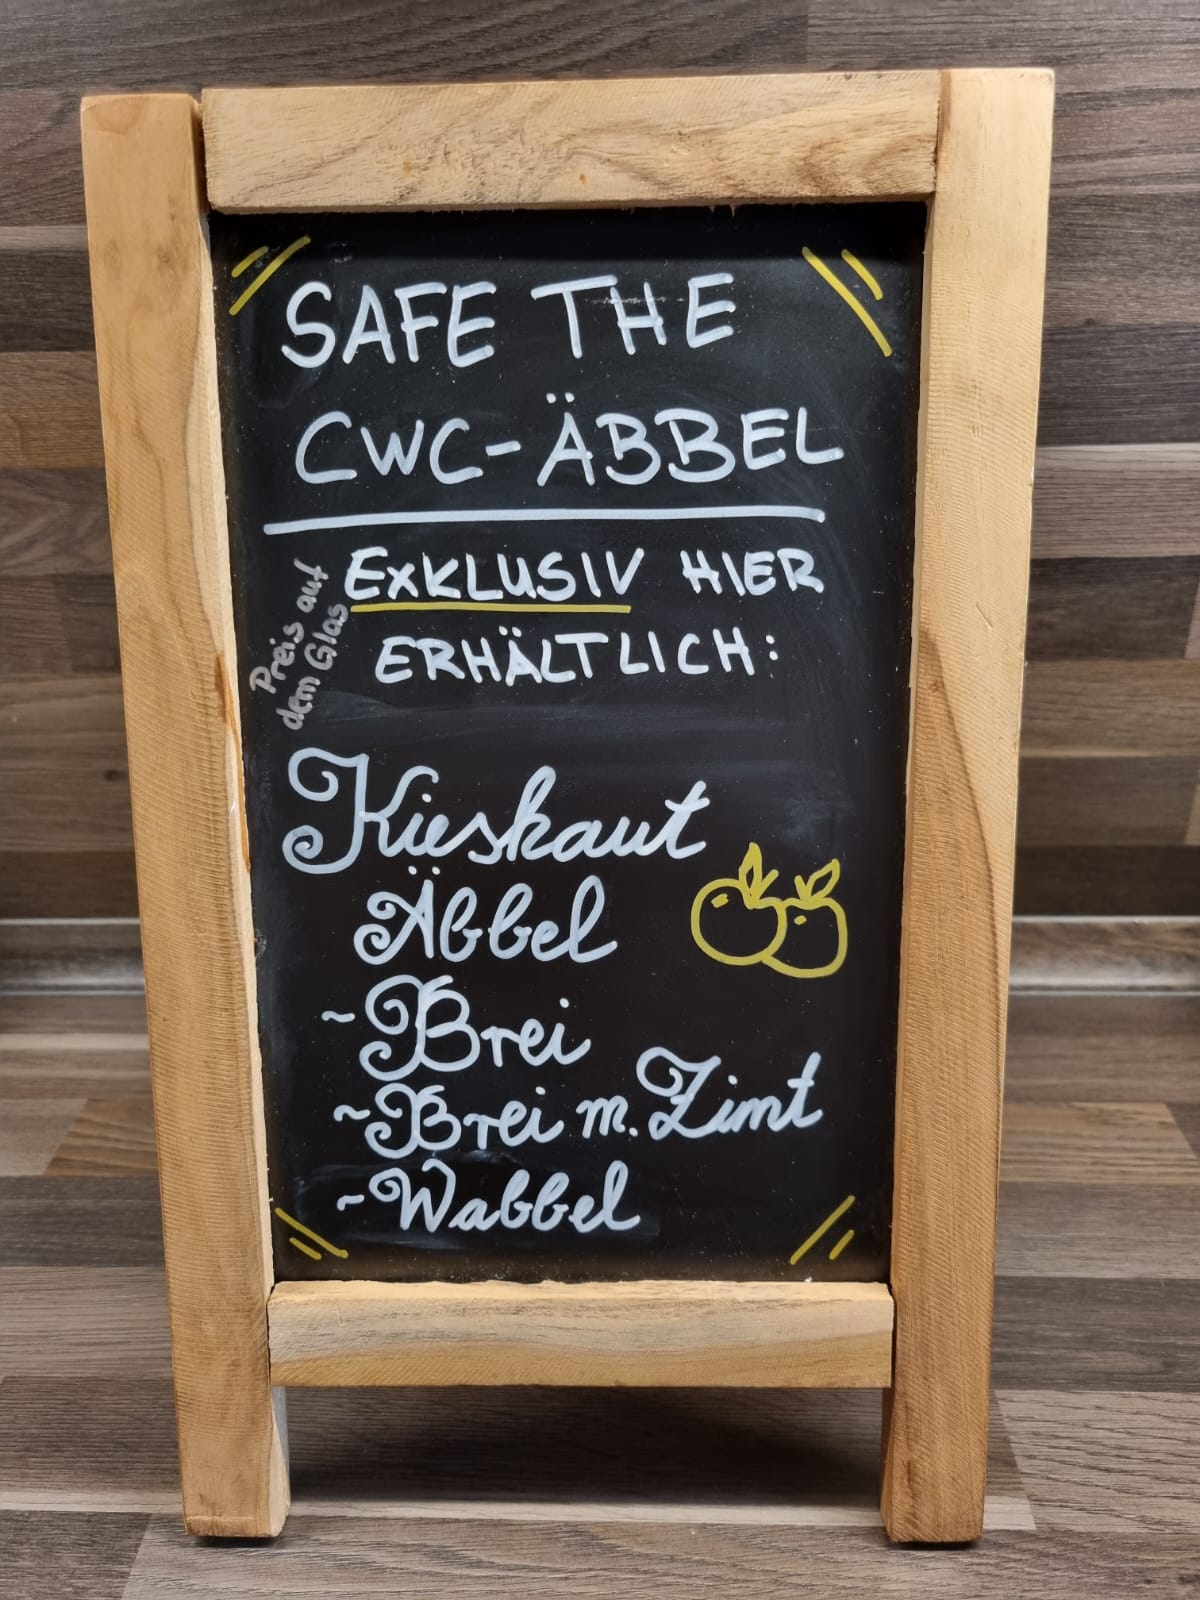 SAFE THE
CWC-ÄBBEL
EXKLUSIV HIER
ERHÄLTLICH:
Preis auf
dem Glas
Kieskaut
Äbbel
~Brei
~Brei m. Zimt
~Wabbel